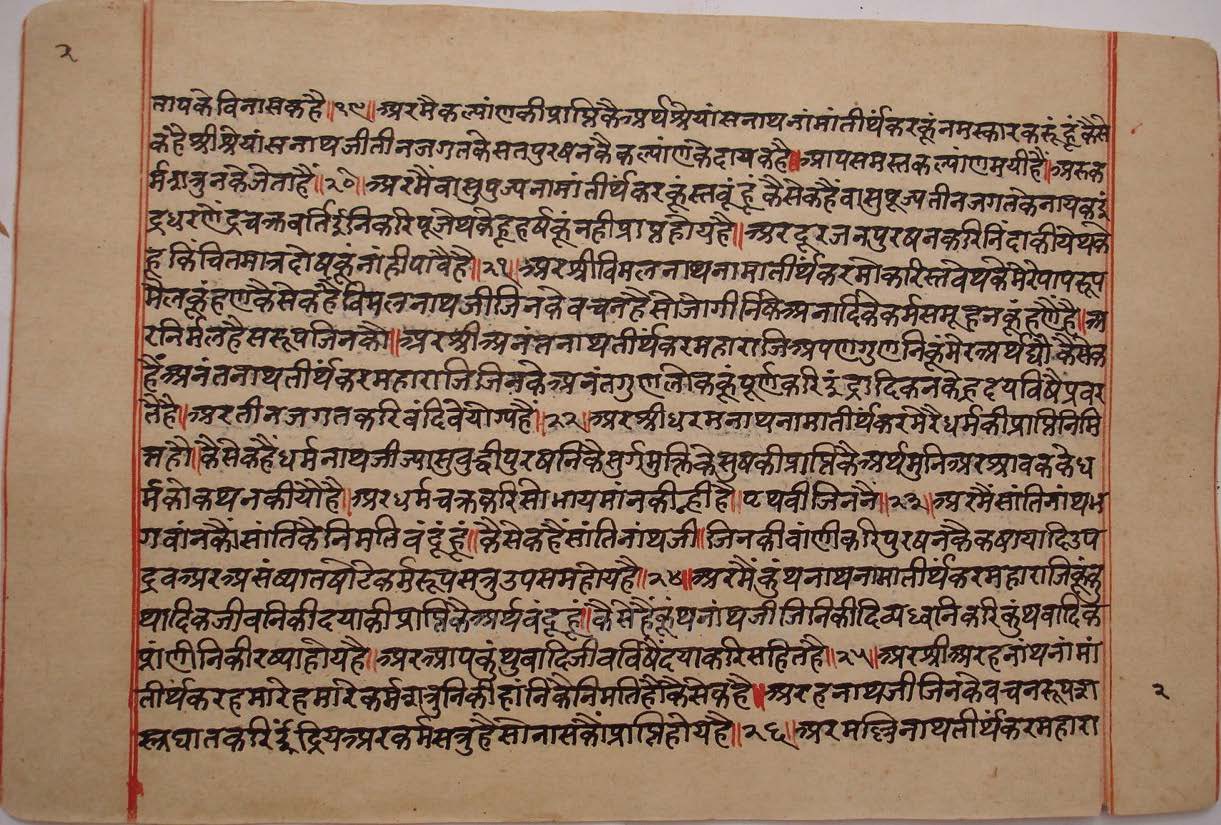 २
तापके विनासकहै॥१९॥अरमैकल्पांणकीप्राप्तिकैअर्थश्रेयांसनाथनांमांतीर्थकरकूंनमस्कारकरूंहूंकैसे
कंहेश्रीश्रेयांसनाथजीतीनजगतकेसतपुरषनकैकल्पांणकेदायकहै॥आपसमस्तकल्पांणमयीहैं॥अरुक
र्मशत्रुनकेजेताहैं॥२०॥अरमैवासुपुज्यनामांतीर्थकरकूंस्तवूंहूंकैसेकहैंवासुपूज्यतीनजगतकेनायकइं
द्रधरणेंद्रचक्रवर्तिइनिकरिपूजेथकेहूहर्षकूंनहीप्राप्तहोयहै॥अरदूरजनपुरषनकरिनिंदाकीयेथके
हूंकिंचितमात्रदोषकूंनांहीपावैहै॥२१॥अरश्रीविमलनाथनामातीर्थकरमोकरिस्तवेथकेमेरेपापरूप
मैलकूंहणकैसेकहैविमलनाथजीजिनकेवचनहैसोजोगीनिकेअनादिकेकर्मसमूहनकूंहणैहै॥अ
रनिर्मलहैसरूपजिनकौ॥अरश्रीअनंतनाथतीर्थकरमहाराजिअपणगुणनिकूंमेरेअर्थद्यौकैसेक
हैंअनंतनाथतीर्थकरमहाराजिजिनकेअनंतगुणलोककूंपूर्णकरिइंद्रादिकनकेहृदयविषैप्रवर
तैहै॥अरतीनजगतकरिबंदिवेयोग्यहैं॥२२॥अरश्रीधरमनाथनामातीर्थकरमेरैधर्मकीप्राप्तिनिमि
त्तहौ॥कैसेकहैंधर्मनाथजीज्यासुबुद्धीपुरषनिकैसुर्गमुक्तिकेसुषकीप्राप्तिकैअर्थमुनिअरश्रावककेध
र्मकोकथनकीयौहै॥अरधर्मचक्रकरिसोभायमांनकीन्हीहै॥पृथवीजिननैं॥२३॥अरमैंसांतिनांथभ
गवांनकौंसांतिकैनिमतिवंदूंहूं॥कैसेकहैंसांतिनांथजी॥जिनकीवांणीकरिपुरषनकैकषायादिउप
द्रवअरअसंख्यातषोटेकर्मरूपसत्रुउपसमहोयहै॥२४॥अरमैंकुंथनाथनामातीर्थकरमहाराजिकूंकुं
थादिकजीवनिकीदयाकीप्राप्तिकैअर्थवंदूहूं॥कैसेहैंकूंथनांथजीजिनिकीदिव्यध्वनिकरिकुथवादिक
प्रांणीनिकीरष्याहोयहै॥अरआपकुंथुवादिजीवविषैदयाकरिसहितहै॥२५॥अरश्रीअरहनांथनांमां
तीर्थकरहमारेहमारेकर्मशत्रुनिकीहांनिकैनिमतिहौकैसेकहै॥अरहनाथजीजिनकेवचनरूपशा
२
स्त्रघातकरिइंद्रियअरकर्मसत्रुहैसोनासकौंप्राप्तिहोयहै॥२६॥अरमल्लिनाथतीर्थकरमहारा